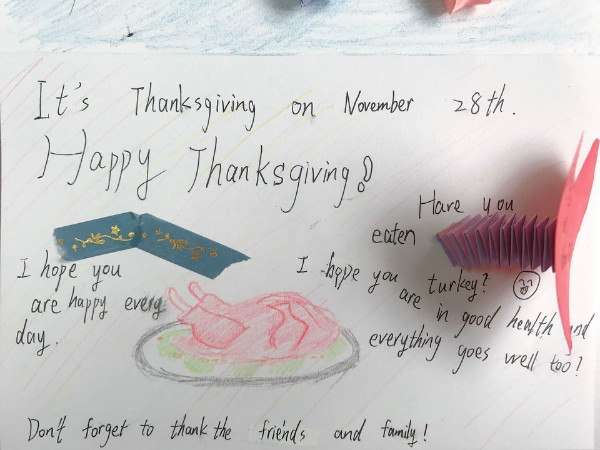 It's Thanksgiving on November 28th.
Happy Thanksgiving!
Have you
eaten
turkey?
I hope you
are happy every
day.
I hope you
are in good health and
everything goes well too!
Don't forget to thank the friends and family!